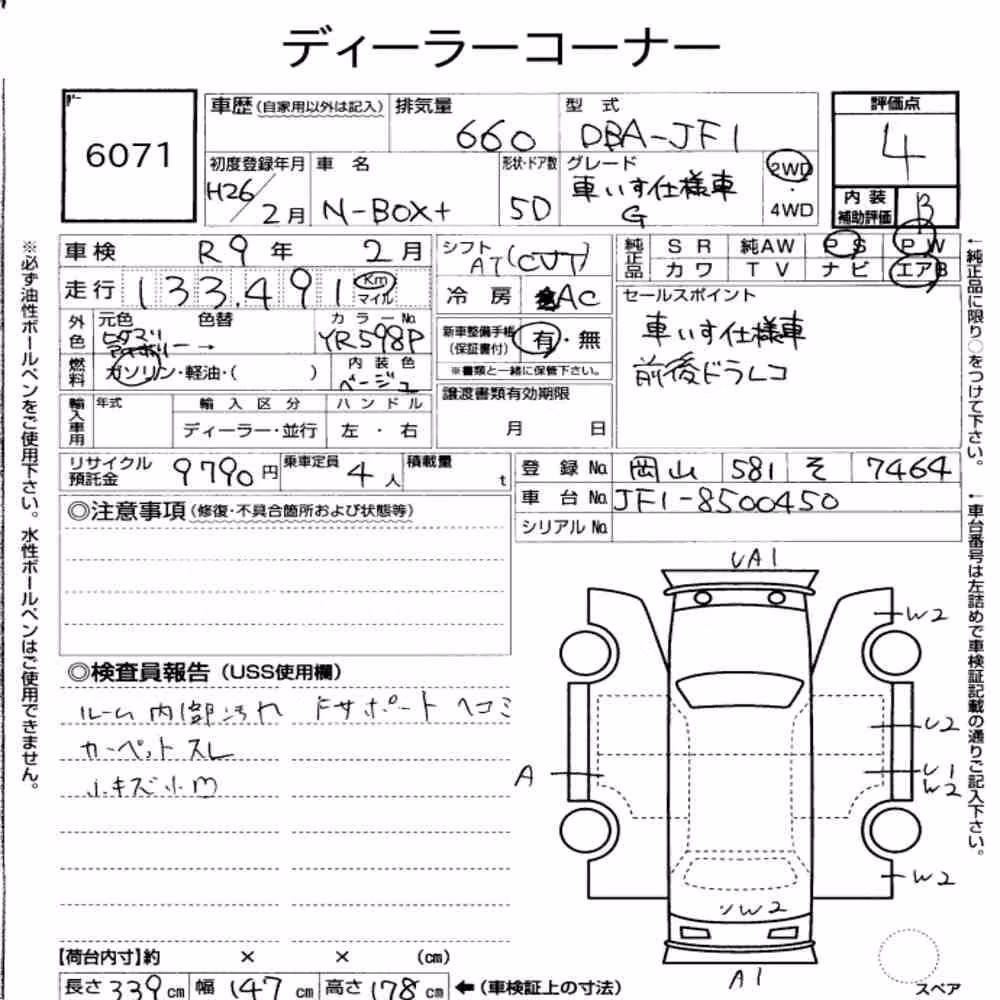 ディーラーコーナー
6071
車歴（自家用以外は記入） 排気量 660 型式 DBA-JF1
初度登録年月 H26/2月 車名 N-BOX+ 形状・ドア数 5D グレード 車いす仕様車 G 2WD・4WD
評価点 4
内装補助評価 B
車検 R9年 2月
走行 133,491 Km マイル
外色 元色 色替 → カラーNo. YR598P
燃料 ガソリン・軽油・（ ） 内装色 ベージュ
輸入車用 年式 輸入区分 ディーラー・並行 ハンドル 左・右
シフト AT(CVT)
冷房 AC
新車整備手帳（保証書付） 有・無
※書類と一緒に保管下さい。
譲渡書類有効期限 月 日
純正品 SR 純AW PS PW
カワ TV ナビ エアB
セールスポイント
車いす仕様車
前後ドラレコ
リサイクル預託金 9790円 乗車定員 4人 積載量 t
登録No. 岡山 581 そ 7464
車台No. JF1-8500450
シリアルNo.
◎注意事項（修復・不具合箇所および状態等）
◎検査員報告（USS使用欄）
ルーム内部汚れ Fサポートヘコミ
カーペットスレ
小キズ小凹
UA1
W2
U2
A
U1
W2
W2
W2
A1
スペア
【荷台内寸】約 × × （cm）
長さ 339cm 幅 147cm 高さ 178cm ←（車検証上の寸法）
※必ず油性ボールペンをご使用下さい。水性ボールペンはご使用できません。
←純正品に限り○をつけて下さい。
←車台番号は左詰めで車検証記載の通りご記入下さい。